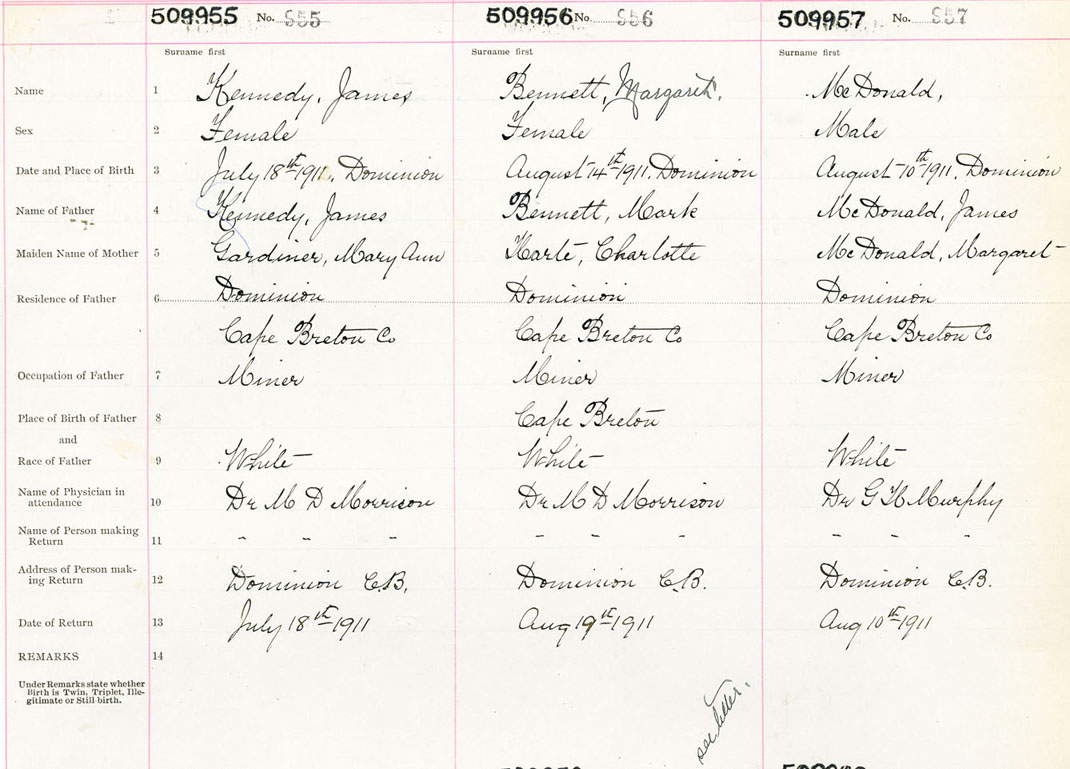 509955 No. 955 509956 No. 956 509957 No. 957
Surname first Surname first Surname first
Name 1 Kennedy, James Bennett, Margaret. McDonald,
Sex 2 Female Female Male
Date and Place of Birth 3 July 18th 1911, Dominion August 14th 1911, Dominion August 10th 1911, Dominion
Name of Father 4 Kennedy, James Bennett, Mark McDonald, James
Maiden Name of Mother 5 Gardiner, Mary Ann Harte, Charlotte McDonald, Margaret
Residence of Father 6 Dominion Dominion Dominion
Cape Breton Co Cape Breton Co Cape Breton Co
Occupation of Father 7 Miner Miner Miner
Place of Birth of Father 8 Cape Breton
and
Race of Father 9 White White White
Name of Physician in
attendance 10 Dr M D Morrison Dr M D Morrison Dr G H Murphy
Name of Person making
Return 11 - - - - - - - - -
Address of Person mak-
ing Return 12 Dominion C.B. Dominion C.B. Dominion C.B.
Date of Return 13 July 18th 1911 Aug 19th 1911 Aug 10th 1911
REMARKS 14
Under Remarks state whether
Birth is Twin, Triplet, Ille-
gitimate or Still-birth.
see letter.